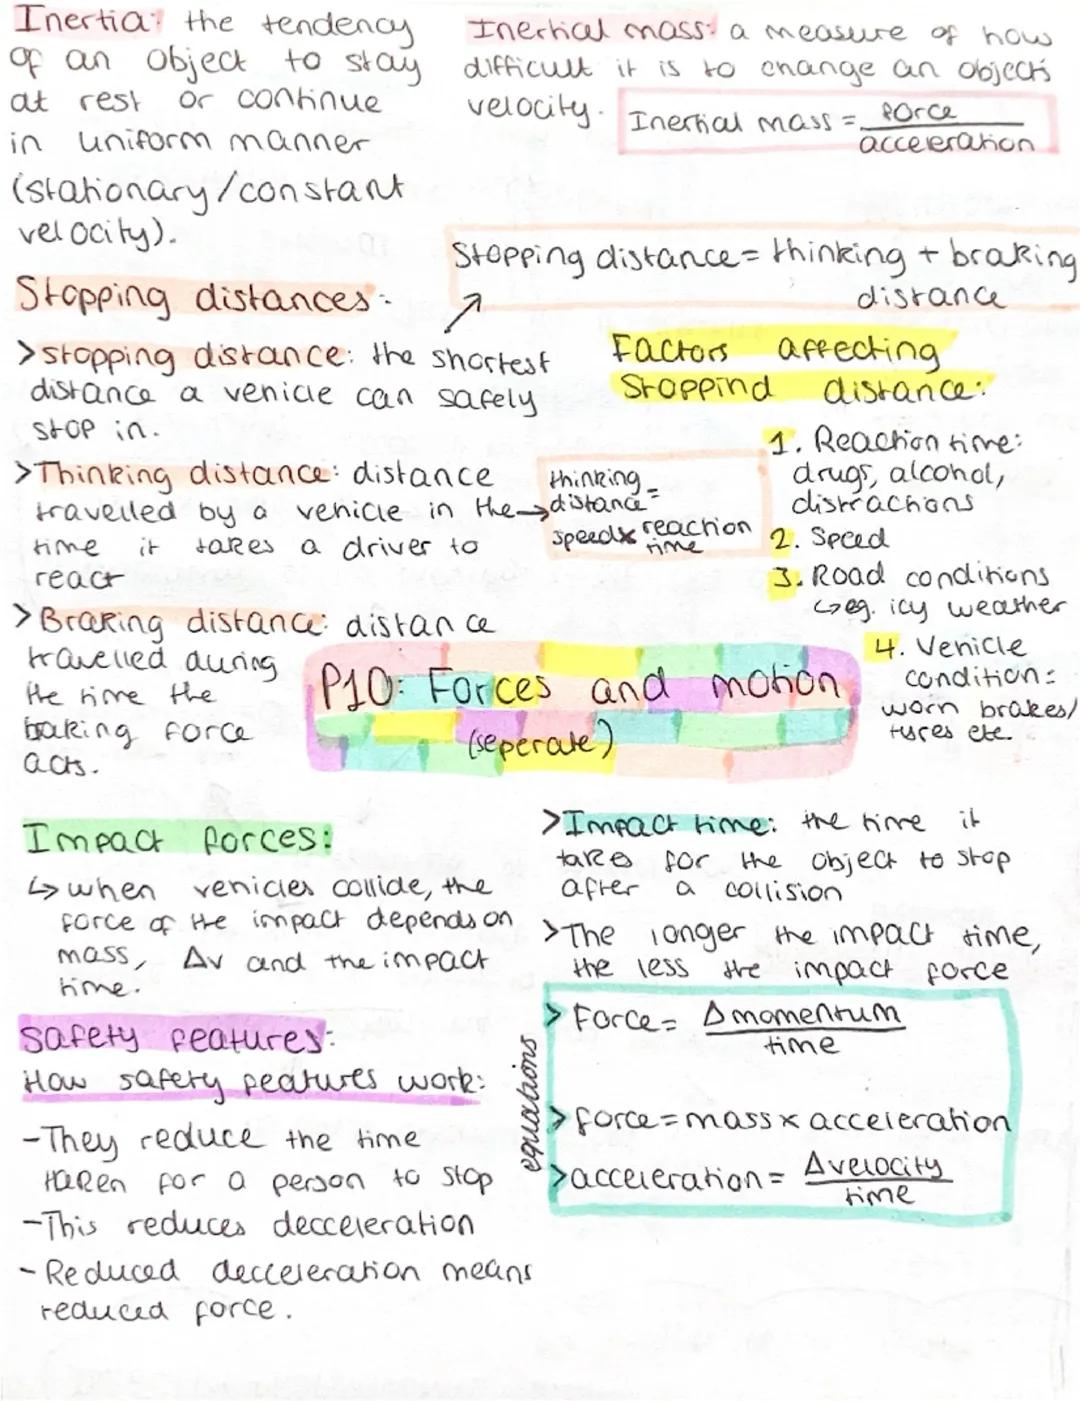 Inertia: the tendency
of an object to stay
at rest or continue
in uniform manner
(stationary/constant
velocity).
Inertial mass: a measure of how
difficult it is to change an objects
velocity.
Inertial mass = force
acceleration
Stopping distance = thinking + braking
distance
Stopping distances:
>stopping distance: the shortest
distance a vehicle can safely
stop in.
>Thinking distance: distance
travelled by a vehicle in the→
time it takes a driver to
react
thinking
distance =
speed x reaction
time
>Braking distance: distance
travelled during
the time the
braking force
acts.
Factors affecting
Stoppind distance:
1. Reaction time:
drugs, alcohol,
distractions
2. Speed
3. Road conditions
↳eg. icy weather
4. Vehicle
condition:
worn brakes/
tyres etc.
P10: Forces and motion
(seperate)
Impact forces:
↳ when vehicles collide, the
force of the impact depends on
mass, Δv and the impact
time.
>Impact time: the time it
takes for the object to stop
after a collision
>The longer the impact time,
the less the impact force
Safety features:
How safety features work:
-They reduce the time
taken for a person to stop
-This reduces decceleration
-Reduced decceleration means
reduced force.
equations
> Force = Δmomentum
time
>force = mass x acceleration
>acceleration = Δvelocity
time